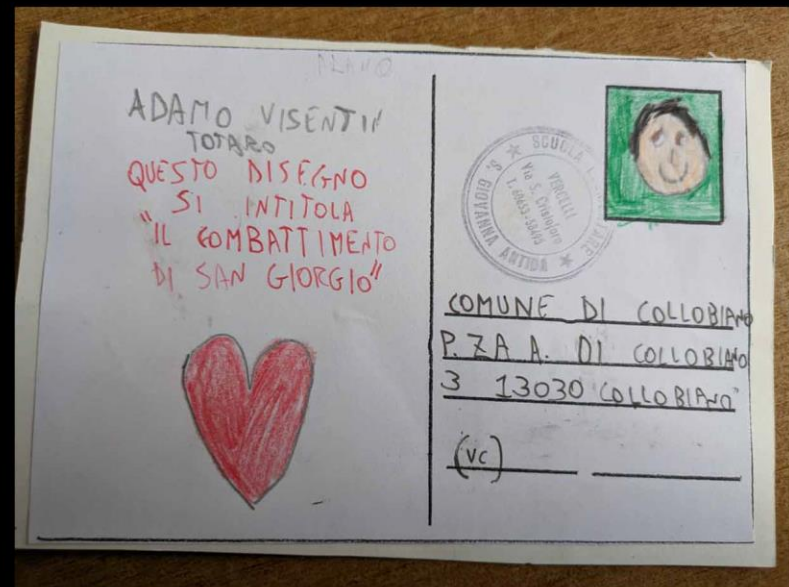 ADAMO VISENTIN
TOTARO
QUESTO DISEGNO
SI INTITOLA
"IL COMBATTIMENTO
DI SAN GIORGIO"
SCUOLA
S. GIOVANNA ANTIDA
VERCELLI
Via S. Cristoforo
COMUNE DI COLLOBIANO
P.ZA A. DI COLLOBIANO
3 13030 "COLLOBIANO"
(VC)